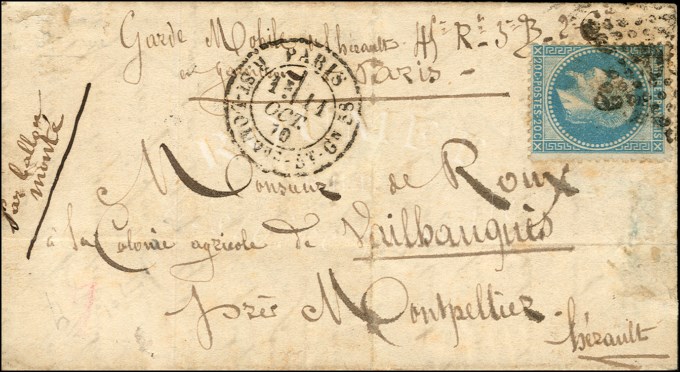 Garde Mobile de l'hérault 45e Rt 3e B
en Paris
PARIS
11
OCT
70
R. ST-DOMque-ST-GN 58
20C POSTES 20C
par ballon
monté
Monsieur de Roux
à la Colonie agricole de Vailhauquès
près Montpellier
hérault